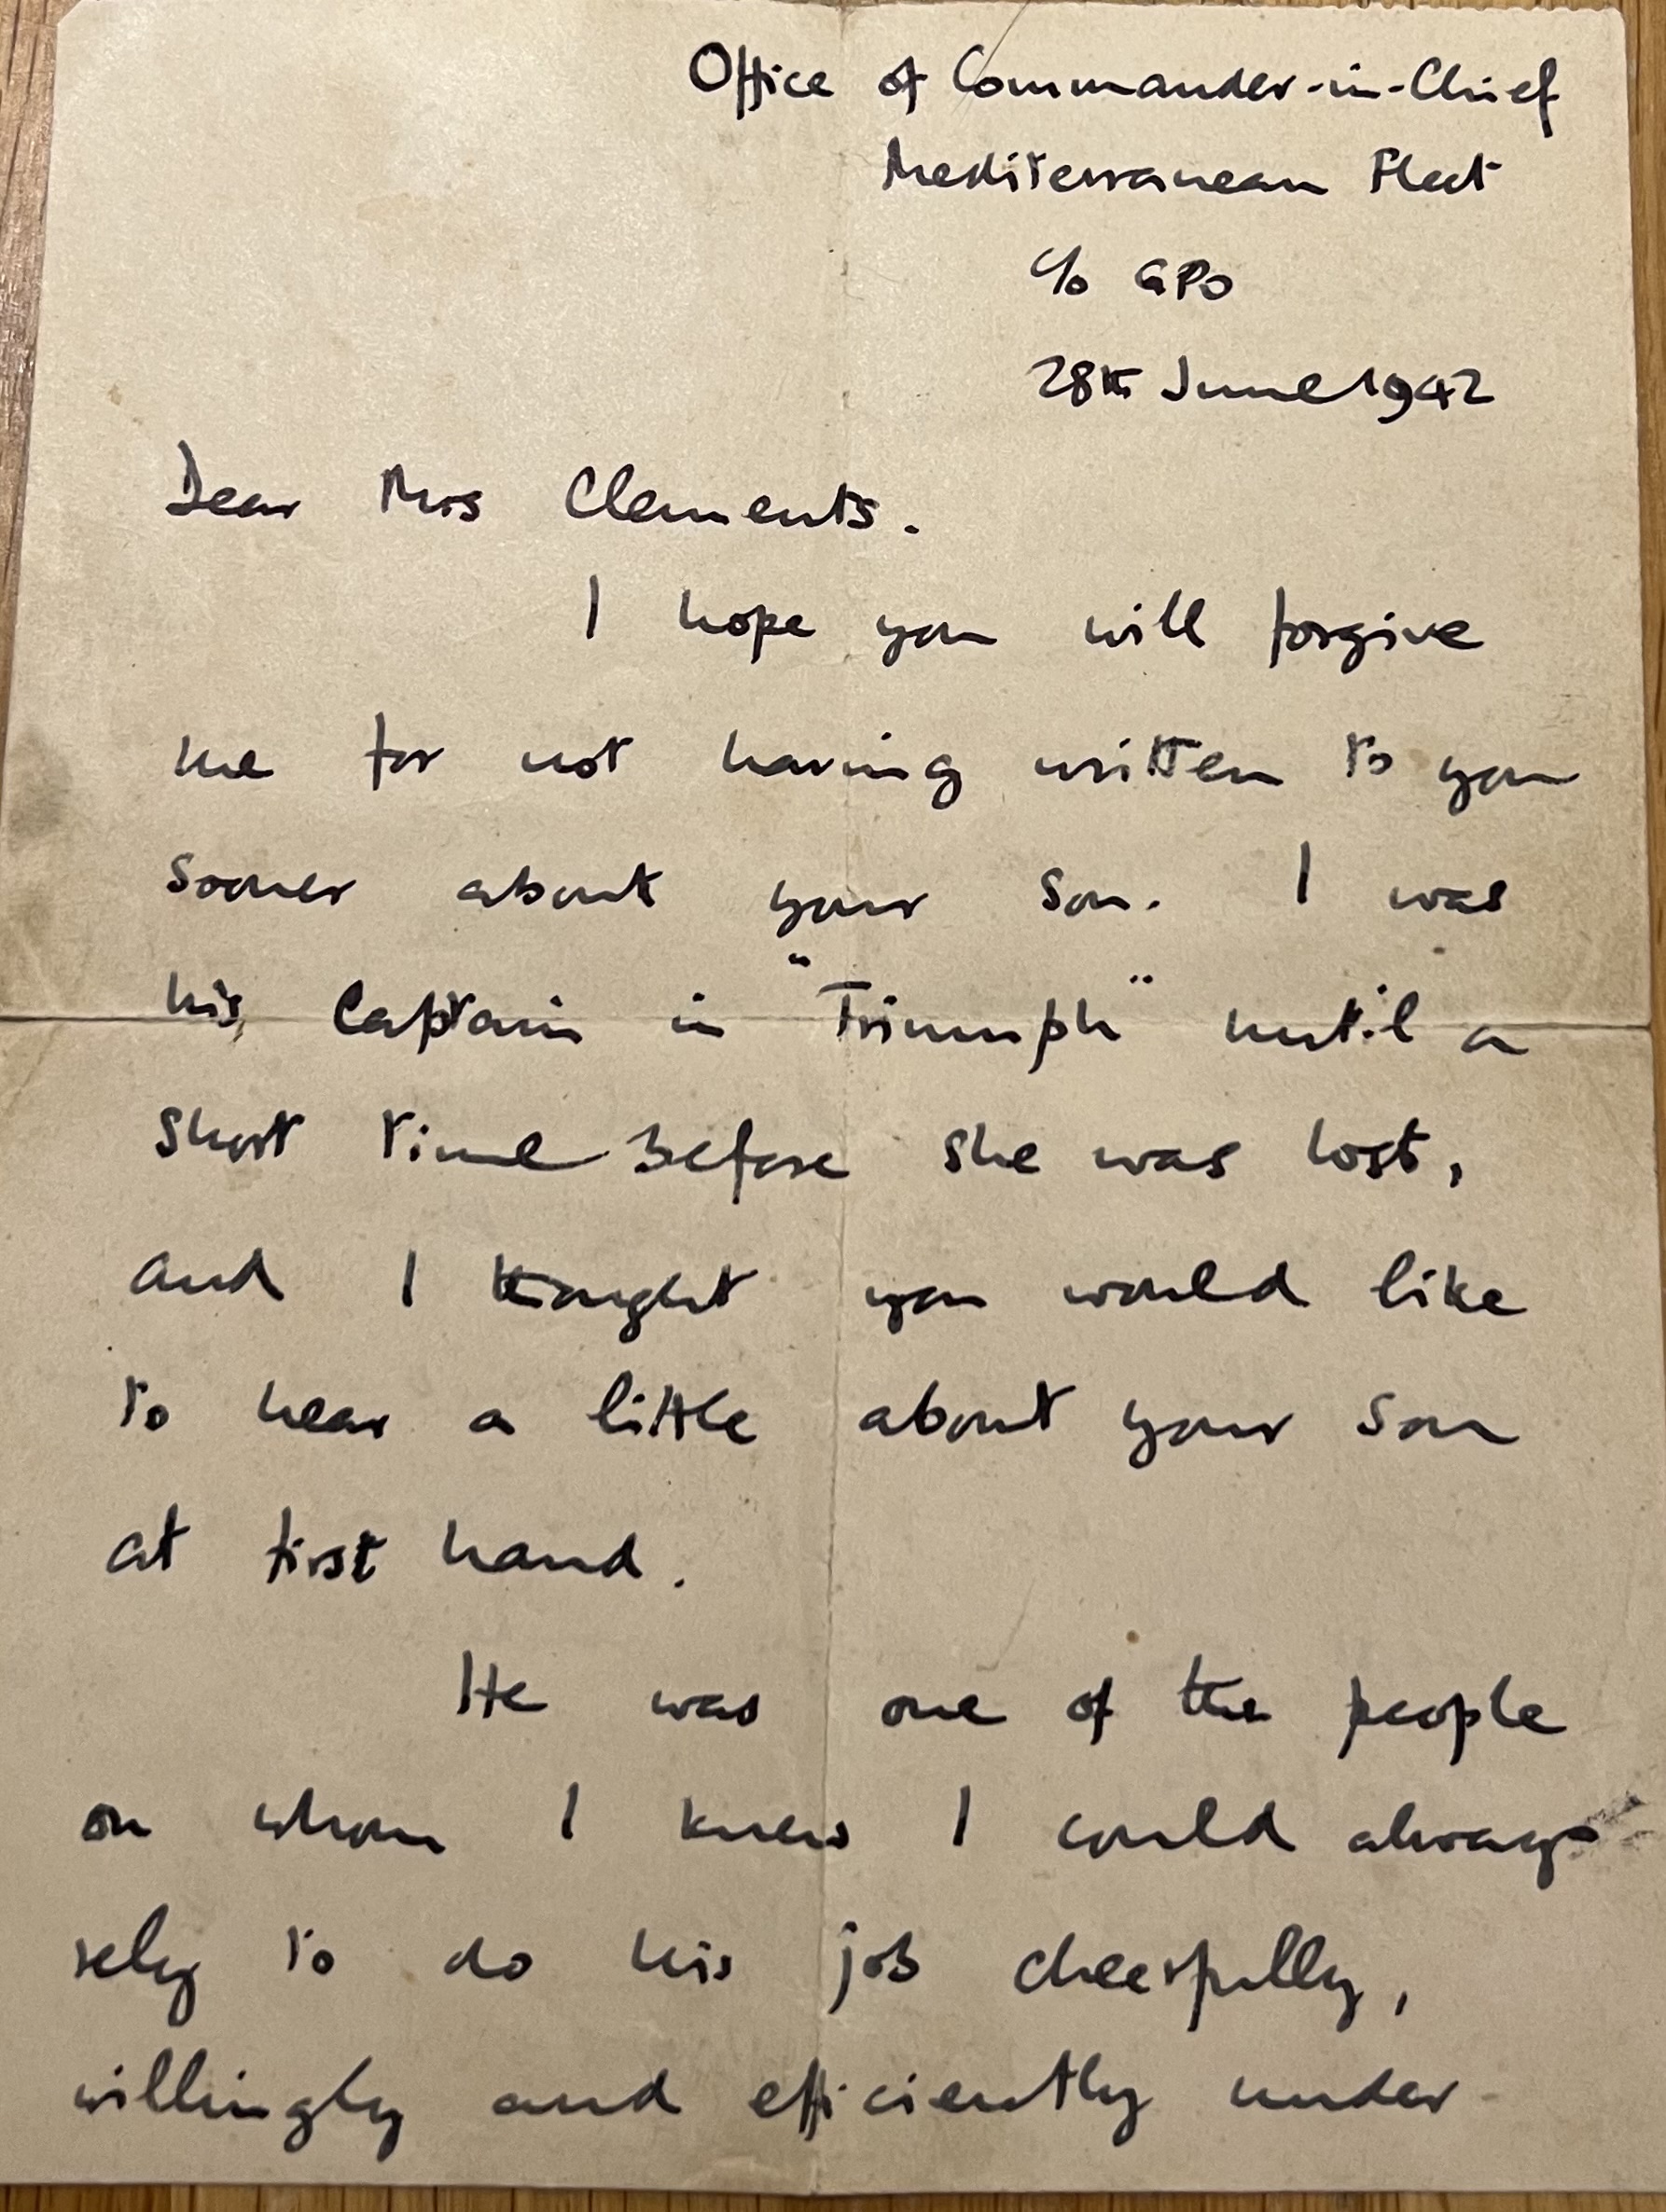 Office of Commander-in-Chief
Mediterranean Fleet
c/o GPO
28th June 1942
Dear Mrs Clements.
I hope you will forgive
me for not having written to you
sooner about your son. I was
his Captain in "Triumph" until a
short time before she was lost,
and I thought you would like
to hear a little about your son
at first hand.
He was one of the people
on whom I knew I could always
rely to do his job cheerfully,
willingly and efficiently under